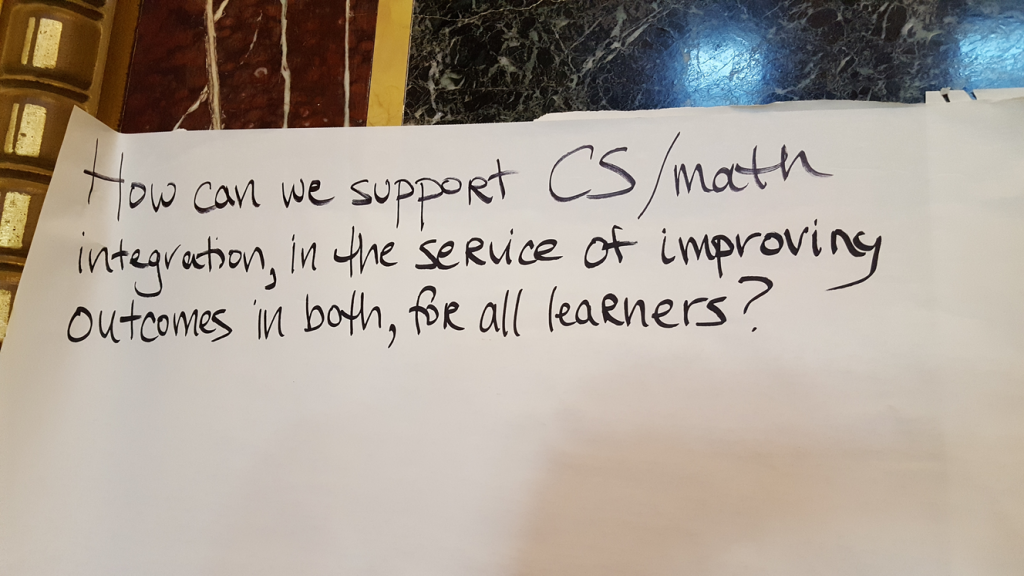 How can we support CS/math
integration, in the service of improving
outcomes in both, for all learners?